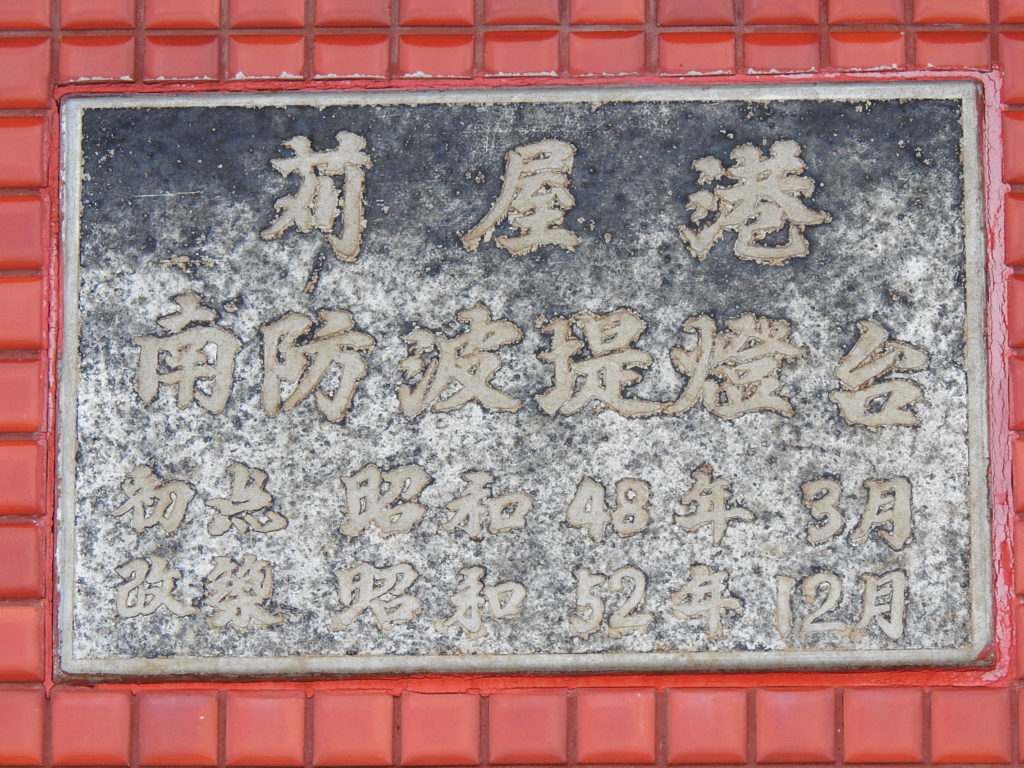 苅屋港
南防波堤燈台
初点 昭和 48年 3月
改築 昭和 52年 12月